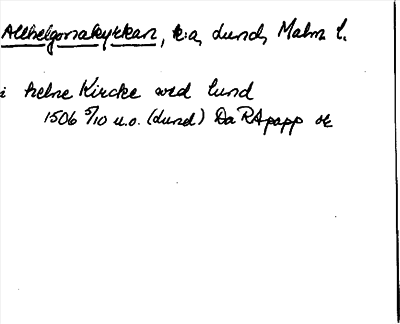 Allhelgonakyrkan, k:a, Lund, Malm. l.
i helne Kircke wed lund
1506 5/10 u.o. (Lund) Da RA papp ok